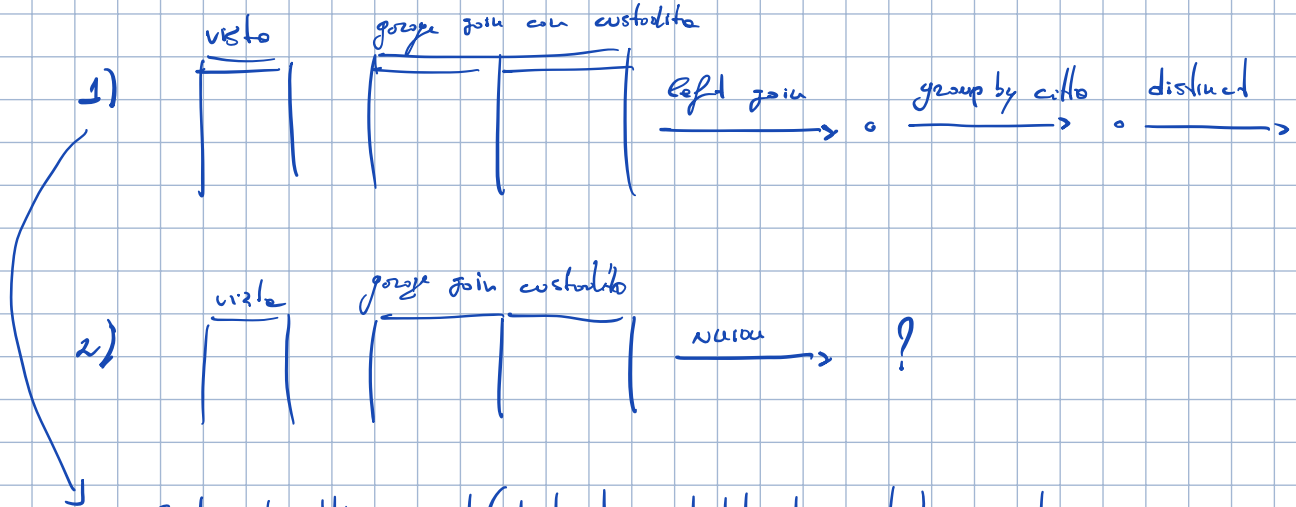 vista garage join con custodita
1) left join group by citta distinct
vista garage join custodito
2) union ?